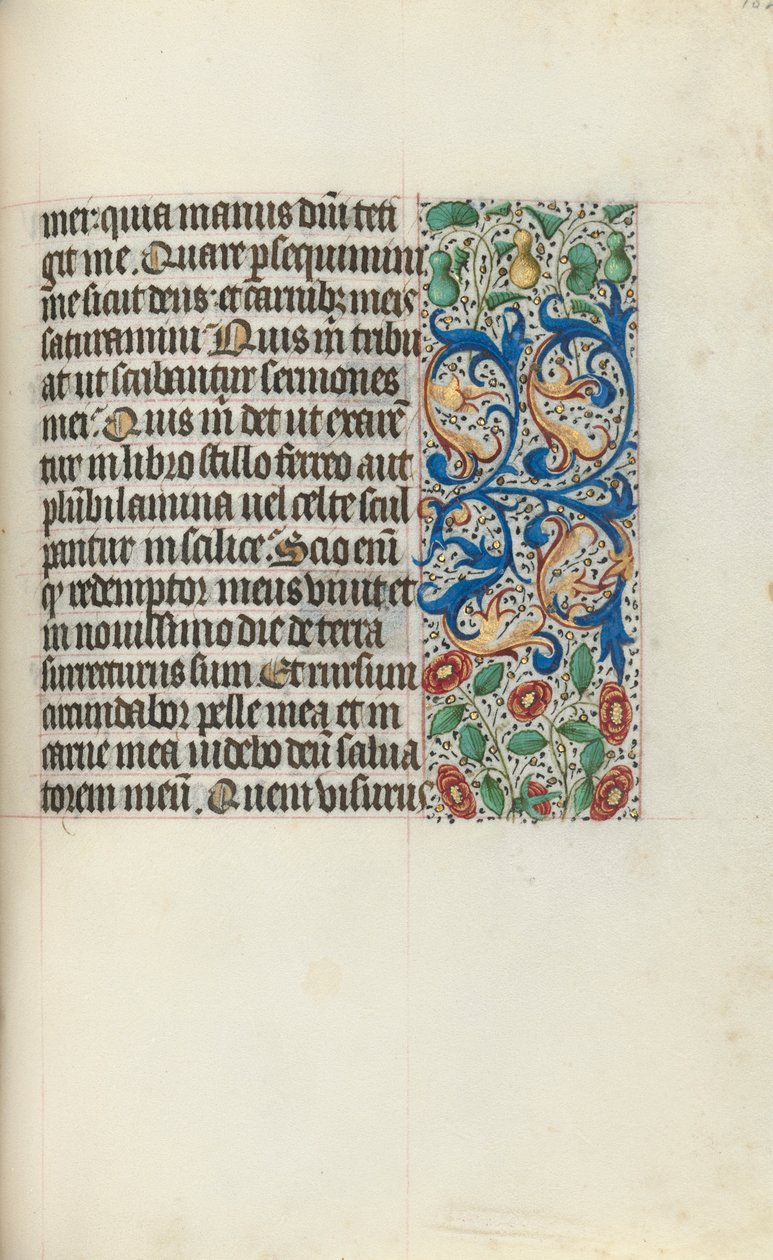 mei: quia manus dñi teti
git me. Quare ꝑsequimini
me sicut deus: et carnibꝫ meis
saturamini Quis m̃ tribu
at ut scribantur sermones
mei. Quis m̃ det ut exarẽ
tur in libro stillo ferreo aut
plũbi lamina uel celte scul
pantur in scilice. Scio enĩ
qꝫ redemptor meus viuit et
in nouissimo die de terra
surrecturus sum Et rursum
circundabor pelle mea et in
carne mea uidebo deũ salua
torem meũ. Quem visurus